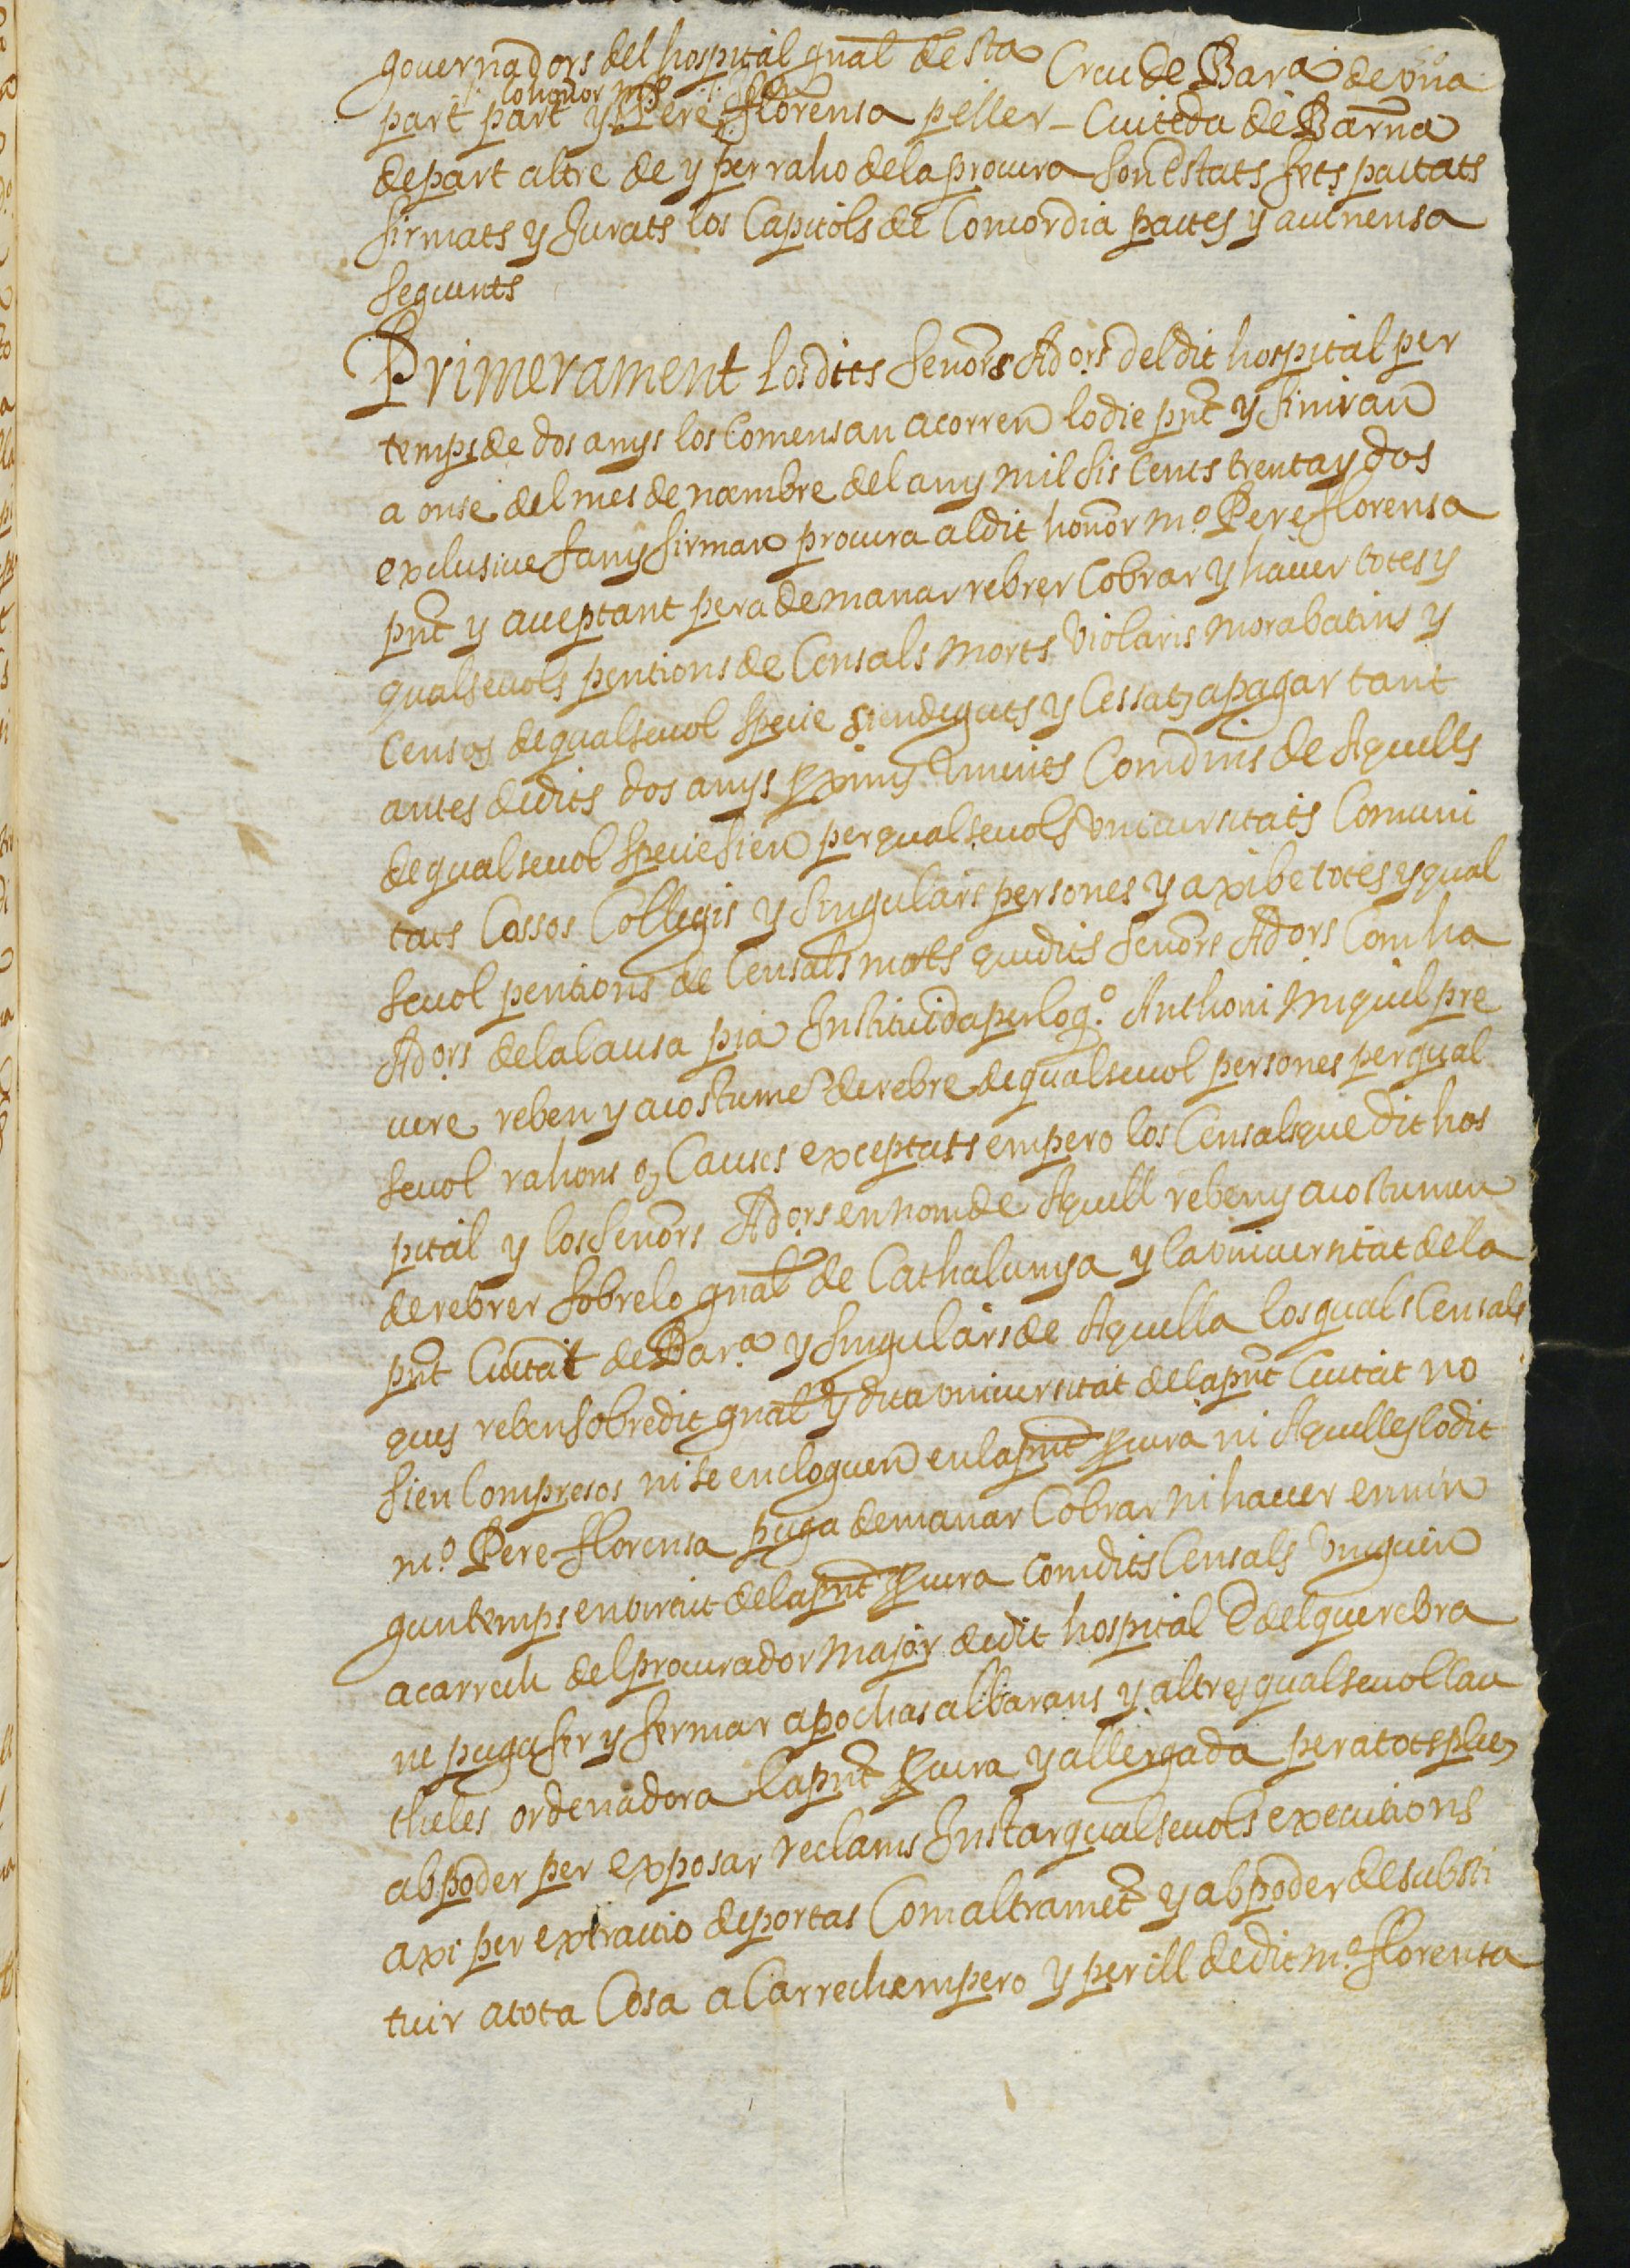 gouernadors del hospital gnal de sta Creu de Bara de vna
lo honor mº
part part y Pere florensa peller Ciuteda de Barna
de part altre de y per raho dela procura son estats fets pactats
firmats y Jurats los Capitols de Concordia pactes y auinensa
seguents
Primerament los dits senors Adors del dit hospital per
temps de dos anys los comensan a correr lo die pnt y finiran
a onse del mes de noembre del any mil sis cents trenta y dos
exclusiue fan y firman procura al dit honor mº Pere florensa
pnt y acceptant pera demanar rebrer cobrar y hauer totes y
qualseuols pentions de Censals morts violaris morabatins y
Censos de qualseuol specie sien deguts y cessats a pagar tant
antes de dits dos anys proxims vinents com dins de Aquells
de qualseuol specie sien per qualseuols vniuersitats Comuni
tats Cossos Collegis y singulars persones y axi be totes y qual
seuol pentions de Censals morts que dits senors Adors com ha
Adors de la causa pia Instituida per lo qº Anthoni Miquel pre
uere reben y acostumen de rebre de qualseuol persones per qual
seuol rahons o Causes exceptats empero los Censals que dit hos
pital y los senors Adors en nom de Aquell reben y acostumen
de rebrer sobre lo gnal de Cathalunya y la vniuersitat de la
pnt Ciutat de Bara y singulars de Aquella los quals Censals
ques reben sobre dit gnal y dita vniuersitat de la pnt Ciutat no
sien Compresos ni se encloguen en la pnt pcura ni Aquelles lo dit
mº Pere florensa puga demanar Cobrar ni hauer en nin
gun temps en virtut de la pnt pcura com dits Censals vinguen
a carrech del procurador major de dit hospital E del que rebra
ne puga fer y fermar apochas albarans y altres qualseuol cau
theles ordenadora la pnt pcura y allergada pera tots plets
ab poder per exposar reclams Instar qualseuols executions
axi per extractio de portas Com altrament y ab poder de substi
tuir a tota Cosa a Carrech empero y perill de dit mº florensa